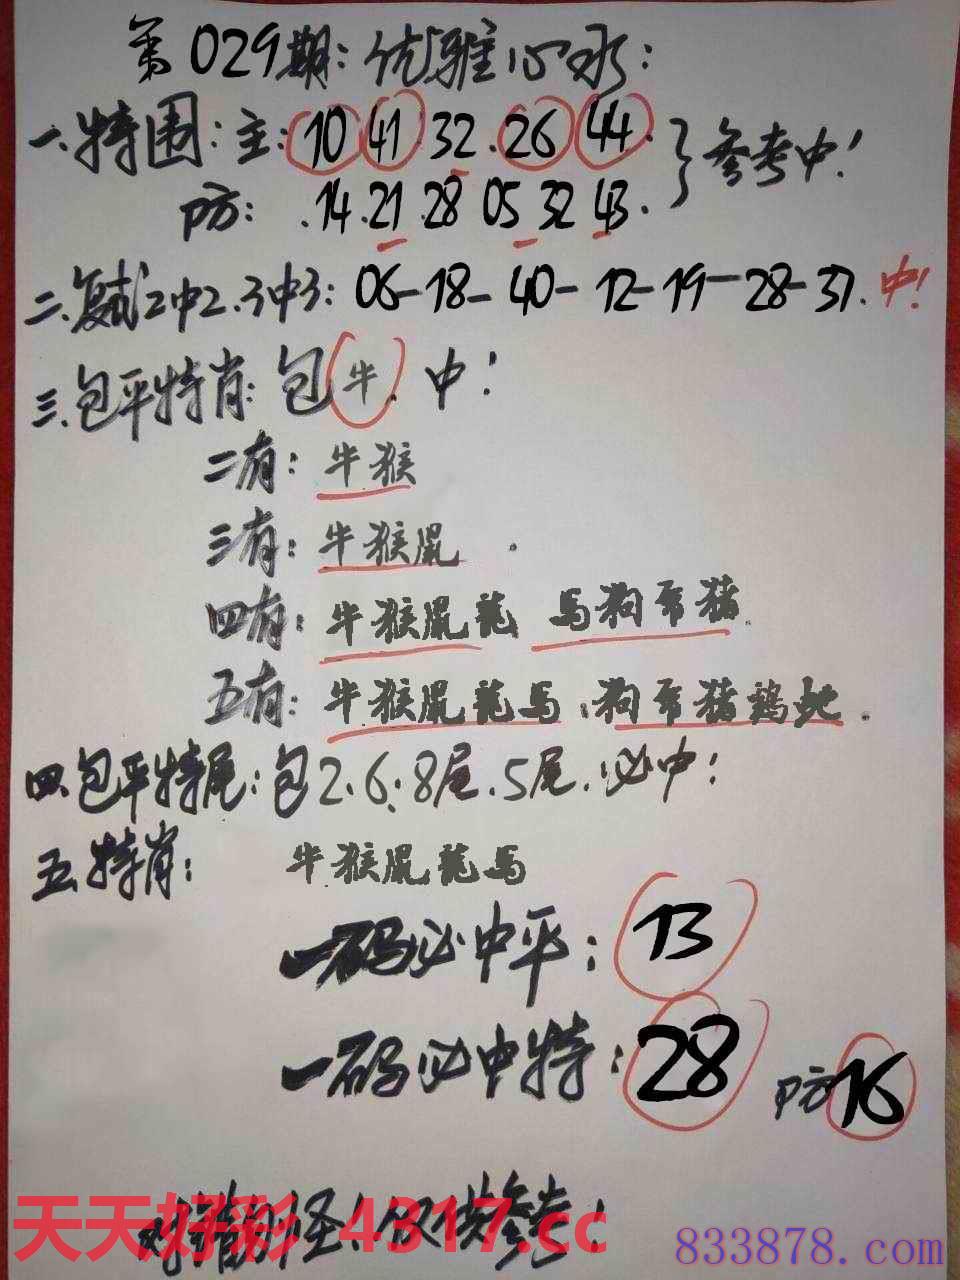 第029期：优雅心水：
一.特围：主：10 41.32.26 44.
参考中！
防：.14.21.28 05 32 43.
二.复式2中2.3中3：06-18-40-12-19-28-37.中！
三.包平特肖：包牛.中！
二有：牛猴
三有：牛猴鼠.
四有：牛猴鼠龍 馬狗兔豬.
五有：牛猴鼠龍馬.狗兔豬鷄蛇.
四.包平特尾：包2.6.8尾.5尾.必中！
五.特肖：牛猴鼠龍馬
一码必中平：13
一码必中特：28 防16
对错勿怪！仅供参考！
天天好彩 4317.cc
833878.com